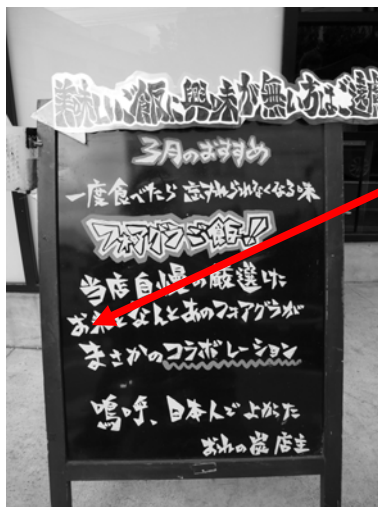 美味しいご飯に興味が無い方はご遠
3月のおすすめ
一度食べたら忘れられなくなる味
フォアグラご飯!!
当店自慢の厳選した
お米となんとあのフォアグラが
まさかのコラボレーション
嗚呼、日本人でよかった
おれの 店主